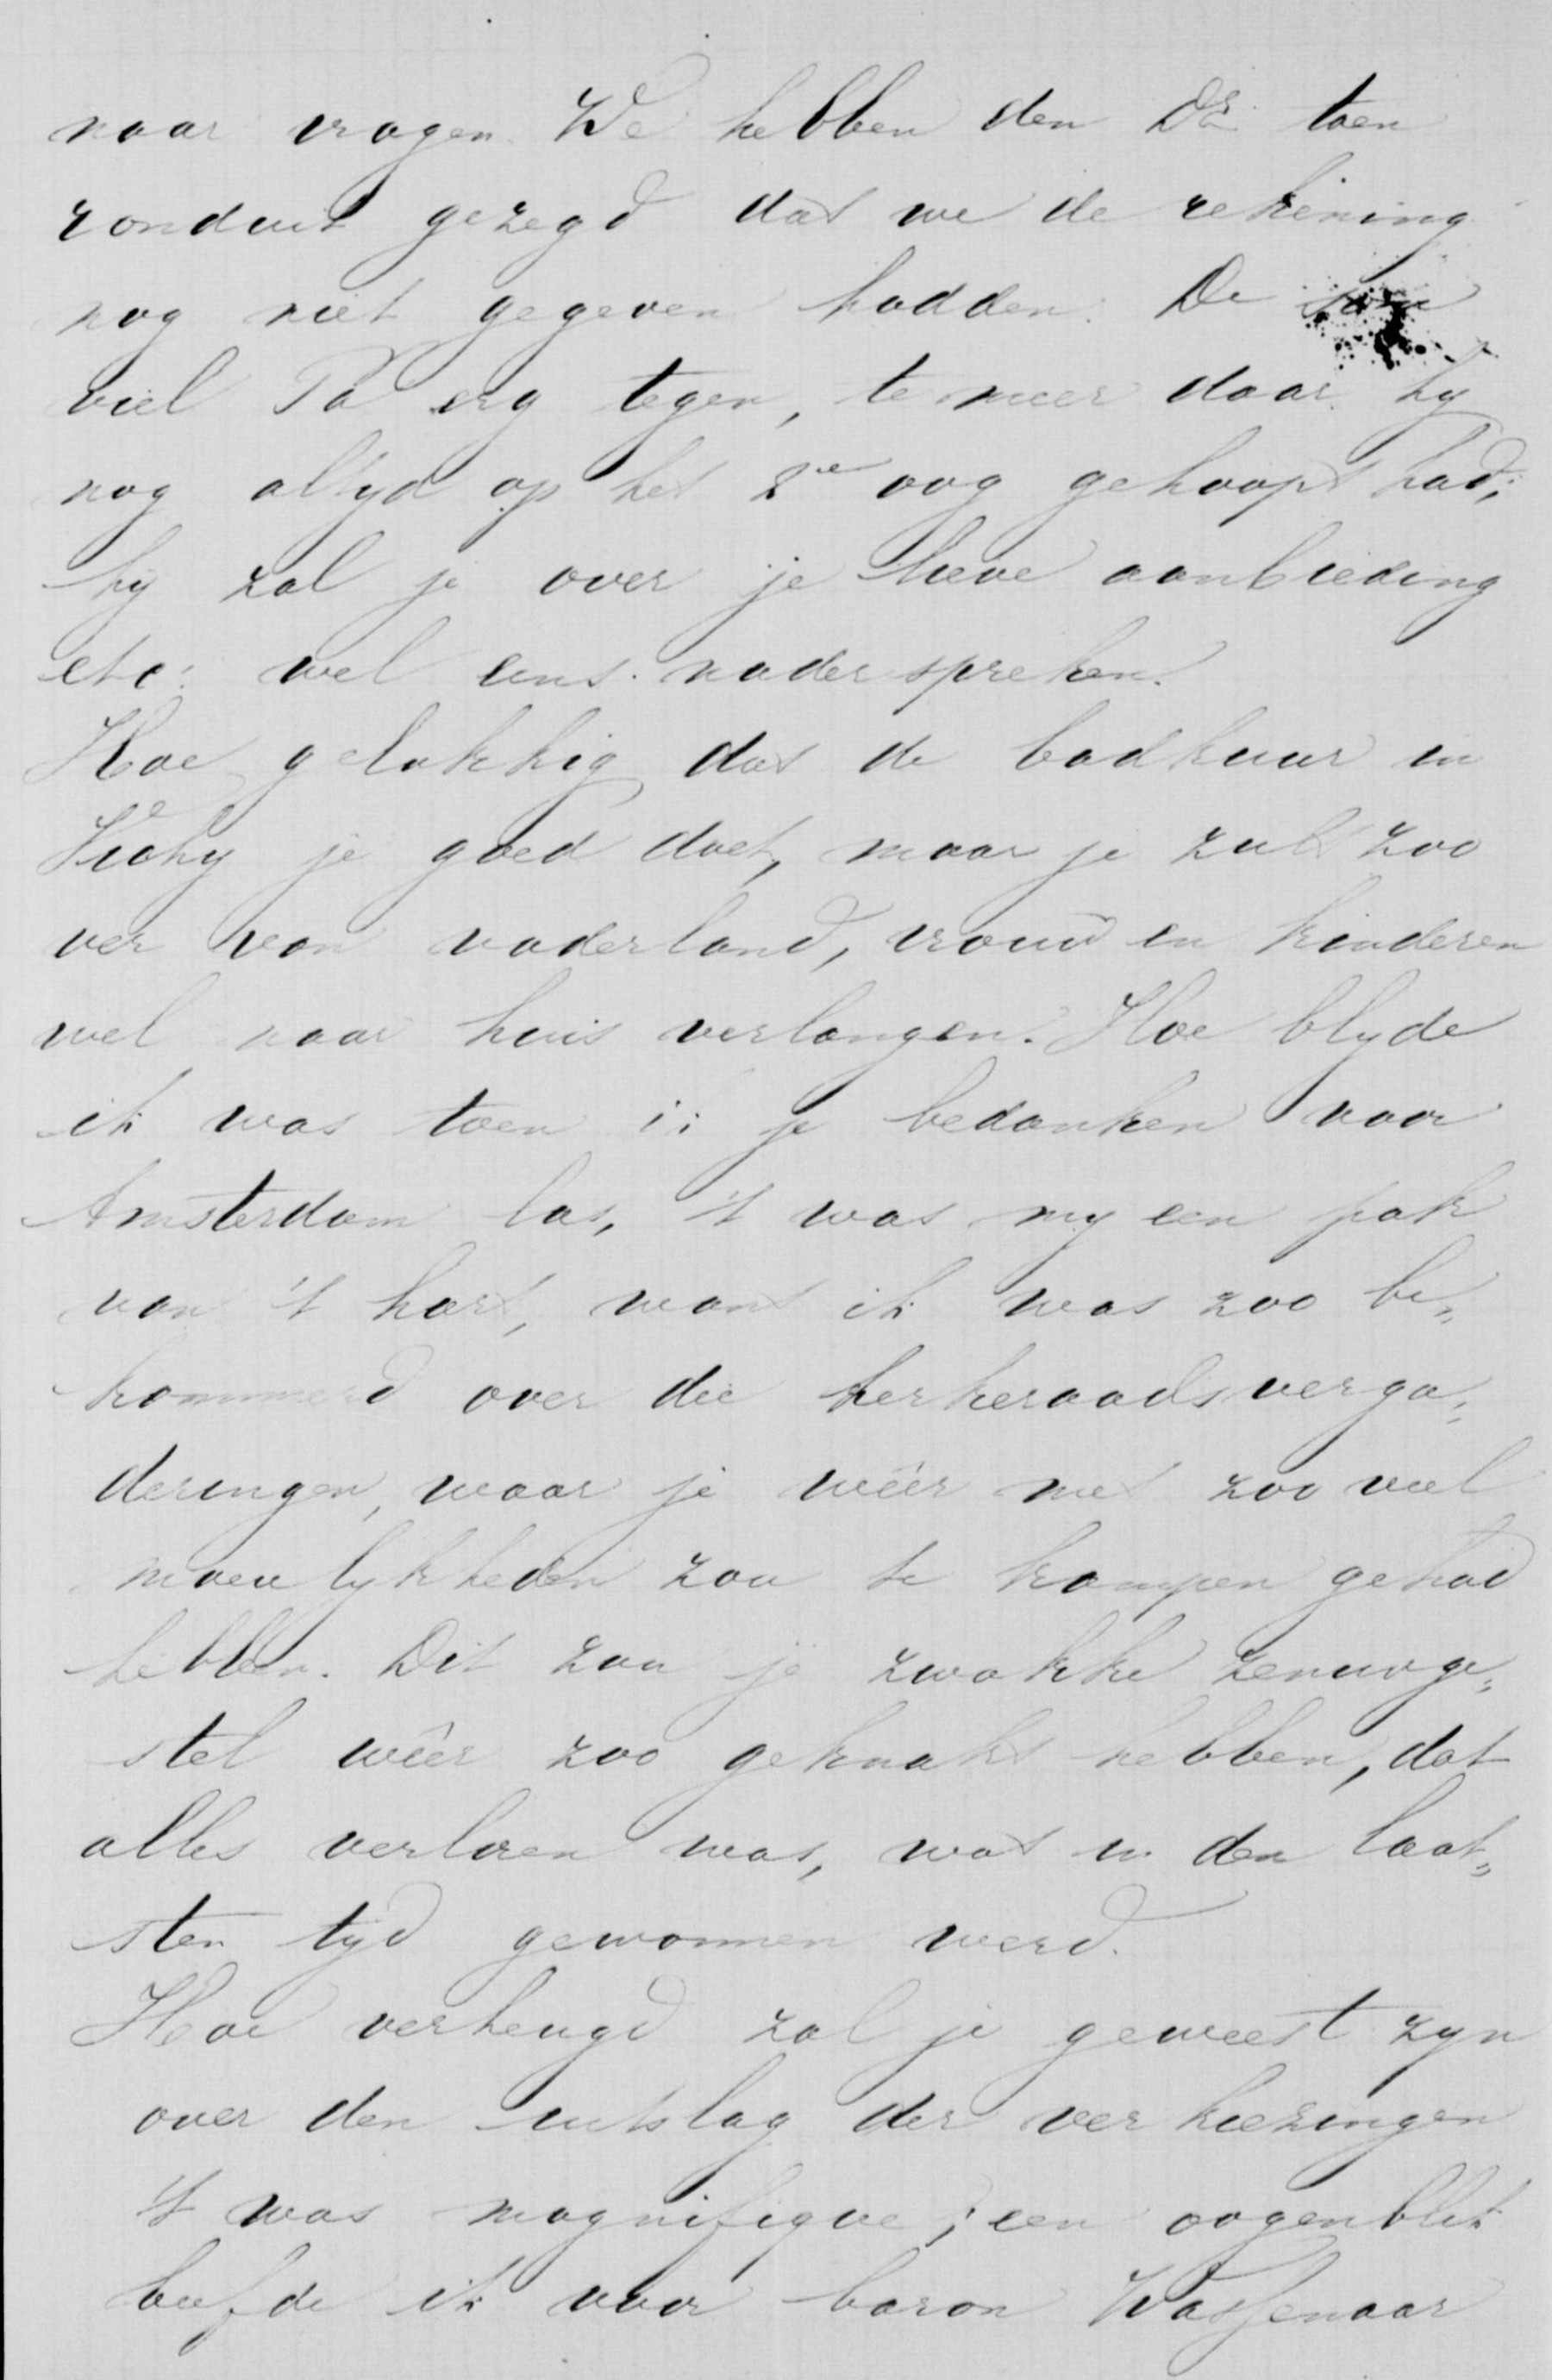 naar vragen. We hebben den Dr. toen
ronduit gezegd dat we de rekening
nog niet gegeven hadden. De som
viel Pa erg tegen, te meer daar hy
nog altyd op het 2e oog gehoopt had;
hy zal je over je lieve aanbieding
etc: wel eens nader spreken.
Hoe gelukkig dat de badkuur in
Vichy je goed doet, maar je zult zoo
ver van vaderland, vrouw en kinderen
wel naar huis verlangen. Hoe blyde
ik was toen ik je bedanken voor
Amsterdam las, 't was my een pak
van 't hart, want ik was zoo be„
kommerd over die kerkeraadsverga„
deringen, waar je wéér met zoo veel
moeielykheden zou te kampen gehad
hebben. Dit zou je zwakke zenuwge„
stel wêer zoo geknakt hebben, dat
alles verloren was, wat in den laat„
sten tyd gewonnen werd.
Hoe verheugd zal je geweest zyn
over den uitslag der verkiezingen
't was magnifique; een oogenblik
beefde ik voor baron Wassenaar